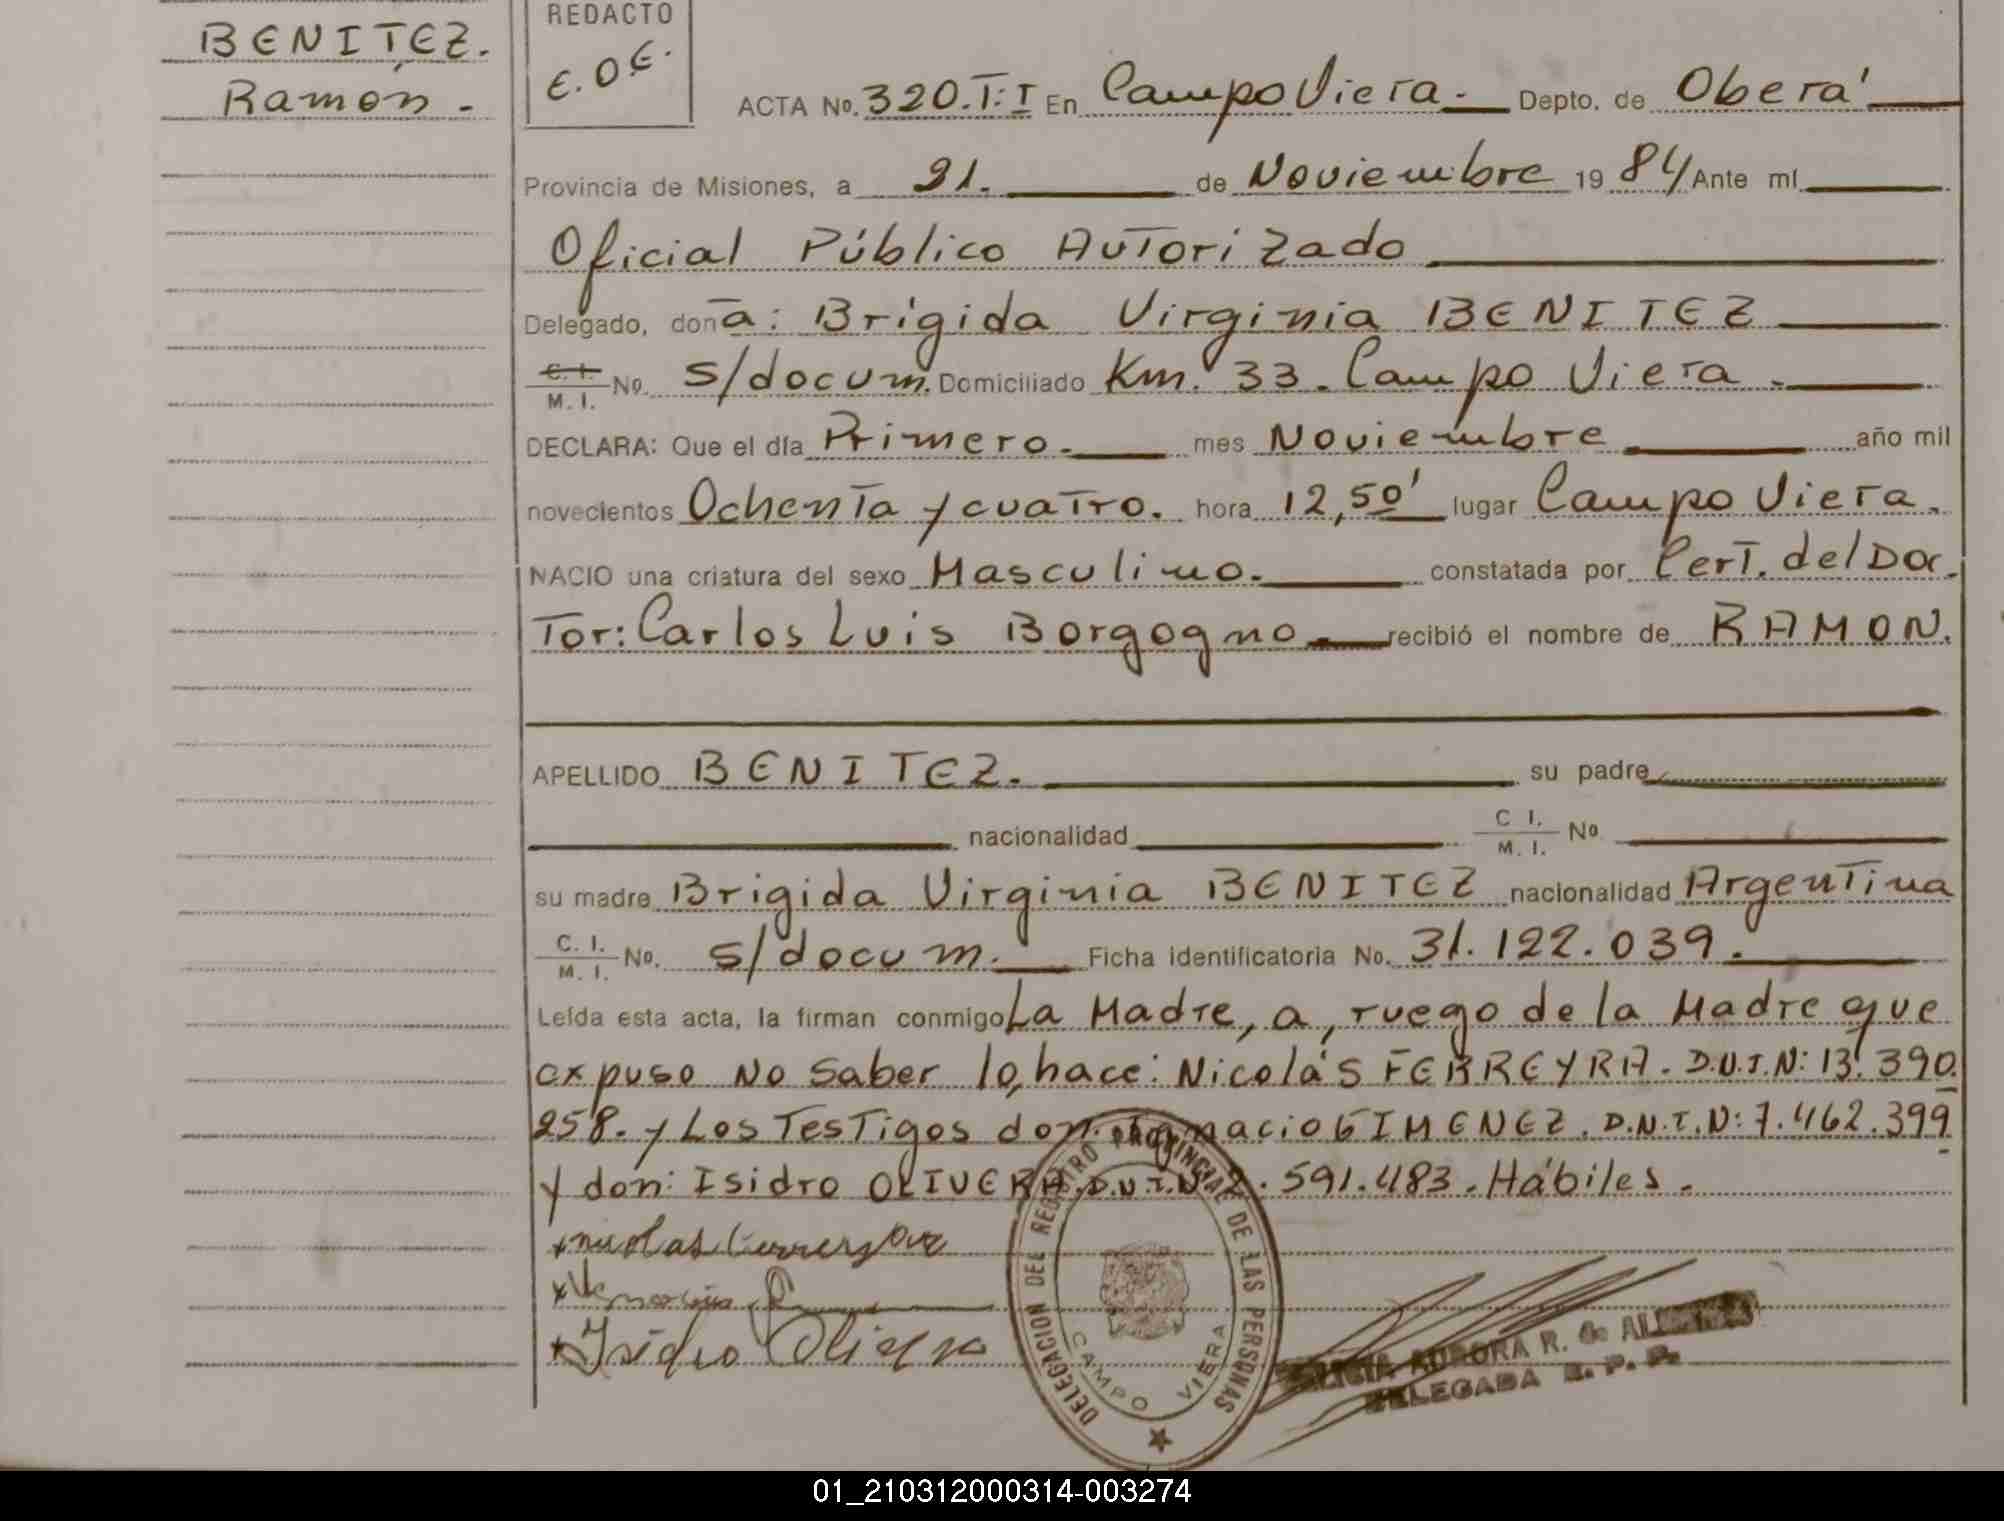 BENITEZ.
Ramón -
REDACTO
E.O.E.
ACTA No. 320.T:I En Campo Viera. Depto. de Oberá
Provincia de Misiones, a 21. de Noviembre 1984 Ante mí
Oficial Público Autorizado
Delegado, doña: Brígida Virginia BENITEZ
C. I. / M. I. No. s/docum. Domiciliado Km. 33. Campo Viera.
DECLARA: Que el día Primero. mes Noviembre año mil
novecientos Ochenta y cuatro. hora 12,50' lugar Campo Viera.
NACIO una criatura del sexo Masculino. constatada por Cert. del Doc-
tor: Carlos Luis Borgogno recibió el nombre de RAMON.
APELLIDO BENITEZ. su padre
nacionalidad C I. / M. I. No
su madre Brigida Virginia BENITEZ nacionalidad Argentina
C. I. / M. I. No. s/docum. Ficha identificatoria No. 31.122.039.
Leída esta acta, la firman conmigo La Madre, a, ruego de la Madre que
expuso No saber lo, hace: Nicolás FERREYRA. D.N.I.N: 13.390.
258. y Los Testigos don: Ignacio GIMENEZ. D.N.I.N: 7.462.399
y don: Isidro OLIVERA. D.N.I.N .591.483. Hábiles.
Isidro Olivera
DELEGACION DEL REGISTRO PROVINCIAL DE LAS PERSONAS
CAMPO VIERA
AURORA R. de
DELEGADA R. P. P.
01_210312000314-003274